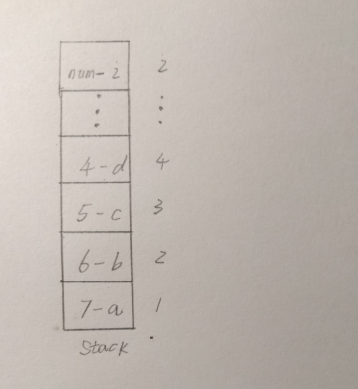 num-i 2
⋮ ⋮
4-d 4
5-c 3
6-b 2
7-a 1
Stack